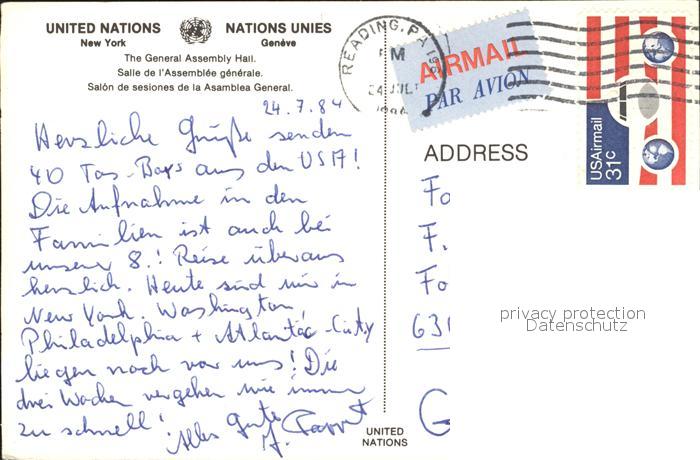 UNITED NATIONS NATIONS UNIES
New York Genève
The General Assembly Hall.
Salle de l'Assemblée générale.
Salón de sesiones de la Asamblea General.
24.7.84
Herzliche Grüße senden
40 Tas-Boys aus den USA!
Die Aufnahme in den
Familien ist auch bei
unserer 8.! Reise überaus
herzlich. Heute sind wir in
New York. Washington
Philadelphia + Atlantic-City
liegen noch vor uns! Die
drei Wochen vergehen wie immer
zu schnell!
Alles Gute
UNITED
NATIONS
READING, PA
PM
24 JUL
AIRMAIL
PAR AVION
USAirmail
31c
ADDRESS
Fo
F.
Fo
631
G
privacy protection
Datenschutz